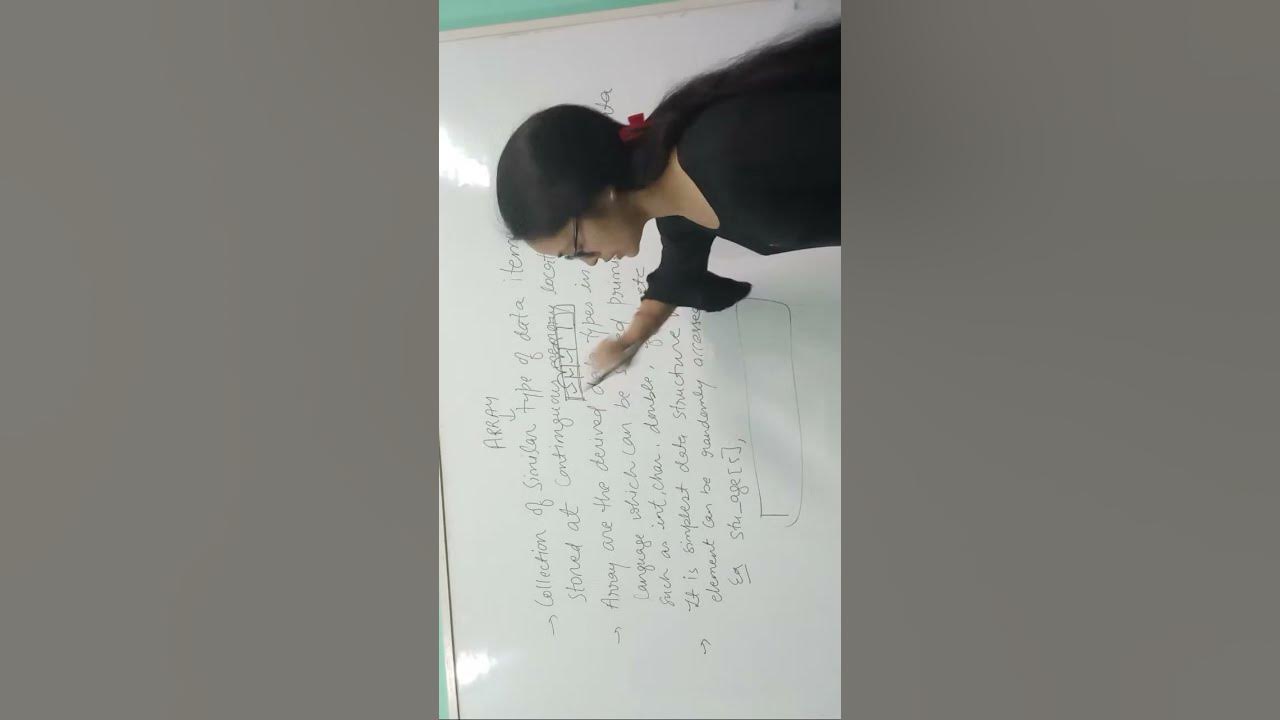 ARRAY
→ Collection of Similar type of data item
Stored at Continguous memory locat
→ Array are the derived types in
Language which can be primi
Such as int, char. double, etc
→ It is simplest data structure
element can be randomly accesse
Eg stu_age[5],